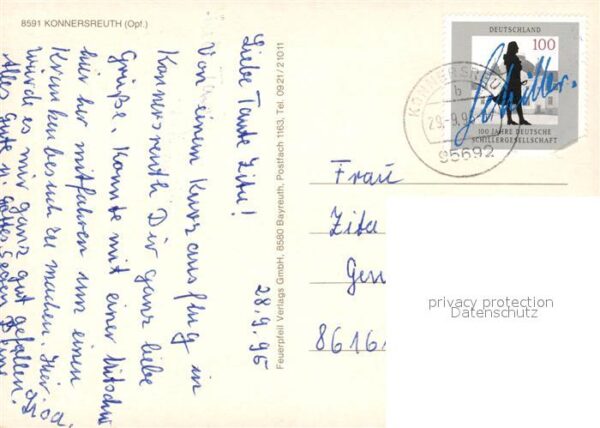 8591 KONNERSREUTH (Opf.)
28.9.95
Liebe Tante Zita!
Von einem Kurzausflug in
Konnersreuth Dir ganz liebe
Grüße. Konnte mit einer Mitschw.
hier her mitfahren um einen
Krankenbesuch zu machen. Hier
würde es mir ganz gut gefallen.
Alles Gute u. Gottes Segen
Feuerpfeil Verlags GmbH, 8580 Bayreuth, Postfach 1163, Tel. 0921/21011
DEUTSCHLAND
100
Schiller.
100 JAHRE DEUTSCHE
SCHILLERGESELLSCHAFT
KONNERSREUTH
b
29.-9.95
95692
Frau
Zita
86161
privacy protection
Datenschutz